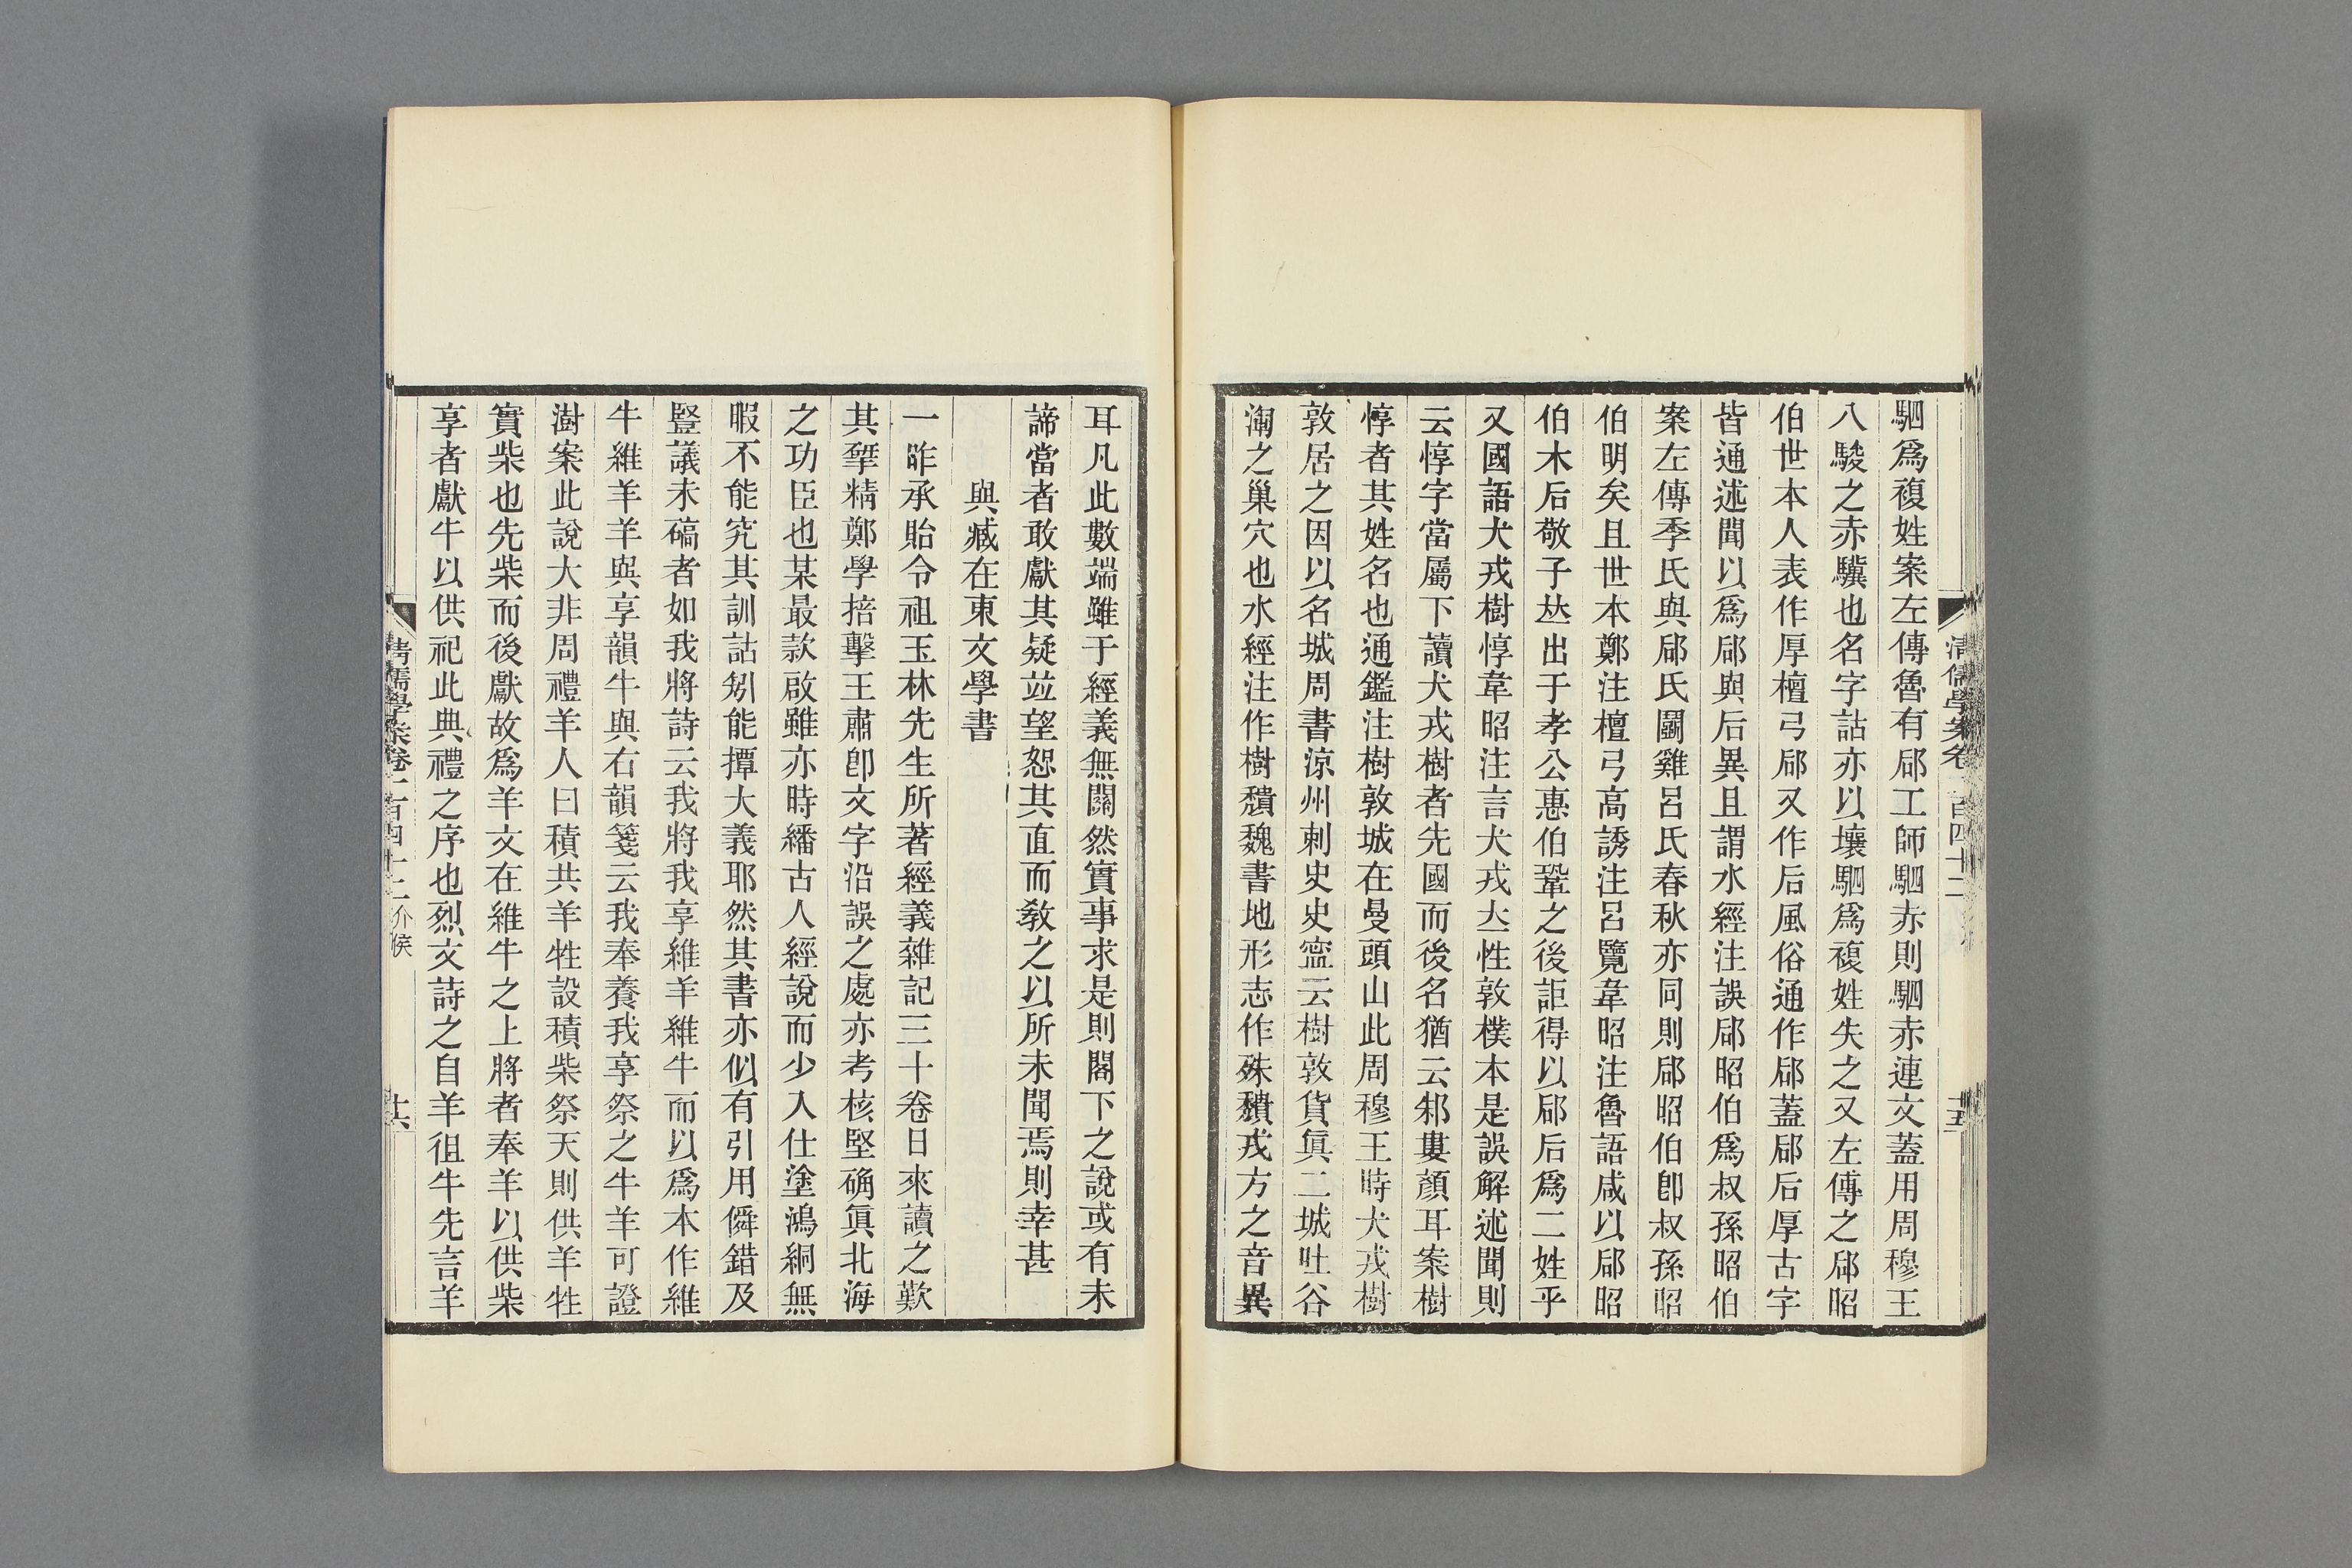 駟爲複姓案左傳魯有郈工師駟赤則駟赤連文蓋用周穆王
八駿之赤驥也名字詁亦以壤駟爲複姓失之又左傳之郈昭
伯世本人表作厚檀弓郈又作后風俗通作郈蓋郈后厚古字
皆通述聞以爲郈與后異且謂水經注誤郈昭伯爲叔孫昭伯
案左傳季氏與郈氏鬭雞呂氏春秋亦同則郈昭伯卽叔孫昭
伯明矣且世本鄭注檀弓高誘注呂覽韋昭注魯語咸以郈昭
伯木后敬子夶出于孝公惠伯鞏之後詎得以郈后爲二姓乎
又國語犬戎樹惇韋昭注言犬戎立性敦樸本是誤解述聞則
云惇字當屬下讀犬戎樹者先國而後名猶云邾婁顏耳案樹
惇者其姓名也通鑑注樹敦城在曼頭山此周穆王時犬戎樹
敦居之因以名城周書涼州刺史史寍云樹敦貨眞二城吐谷
渾之巢穴也水經注作樹穨魏書地形志作殊穨戎方之音異
耳凡此數端雖于經義無關然實事求是則閣下之說或有未
諦當者敢獻其疑竝望恕其直而敎之以所未聞焉則幸甚
與臧在東文學書
一昨承貽令祖玉林先生所著經義雜記三十卷日來讀之歎
其揅精鄭學掊擊王肅卽文字沿誤之處亦考核堅确眞北海
之功臣也某最款啟雖亦時繙古人經說而少入仕塗鴻絅無
暇不能究其訓詁矧能撢大義耶然其書亦似有引用僢錯及
豎議未碻者如我將詩云我將我享維羊維牛而以爲本作維
牛維羊羊與享韻牛與右韻箋云我奉養我享祭之牛羊可證
澍案此說大非周禮羊人曰積共羊牲設積柴祭天則供羊牲
實柴也先柴而後獻故爲羊文在維牛之上將者奉羊以供柴
享者獻牛以供祀此典禮之序也烈文詩之自羊徂牛先言羊
清儒學案卷一百四十二
十五
清儒學案卷一百四十二 介侯
十六